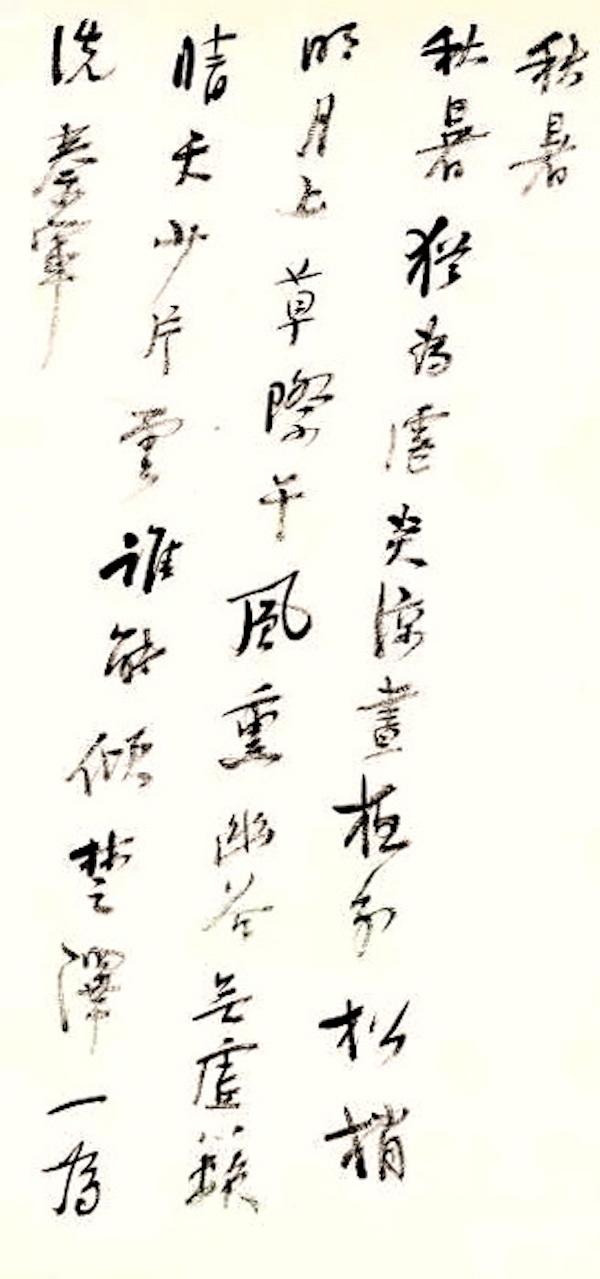 秋暑
秋暑猶為虐炎涼晝極分松梢
明月上草際午風熏幽谷無虛籟
晴天少片雲誰能傾楚澤一為
洗秦軍